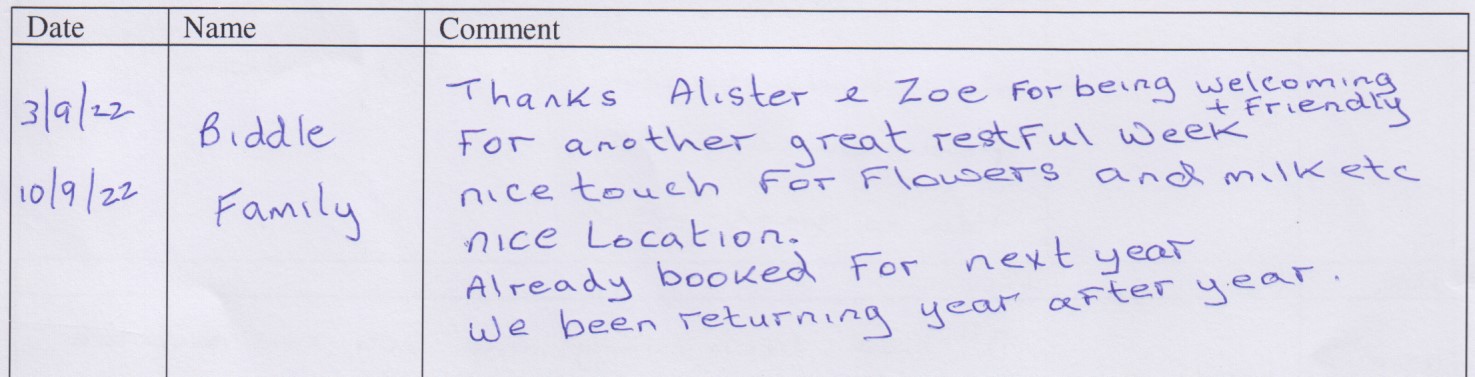 Date Name Comment
3/9/22
10/9/22
Biddle
Family
Thanks Alister & Zoe For being welcoming
+ Friendly
For another great restFul week
nice touch For Flowers and milk etc
nice Location.
Already booked For next year
We been returning year after year.